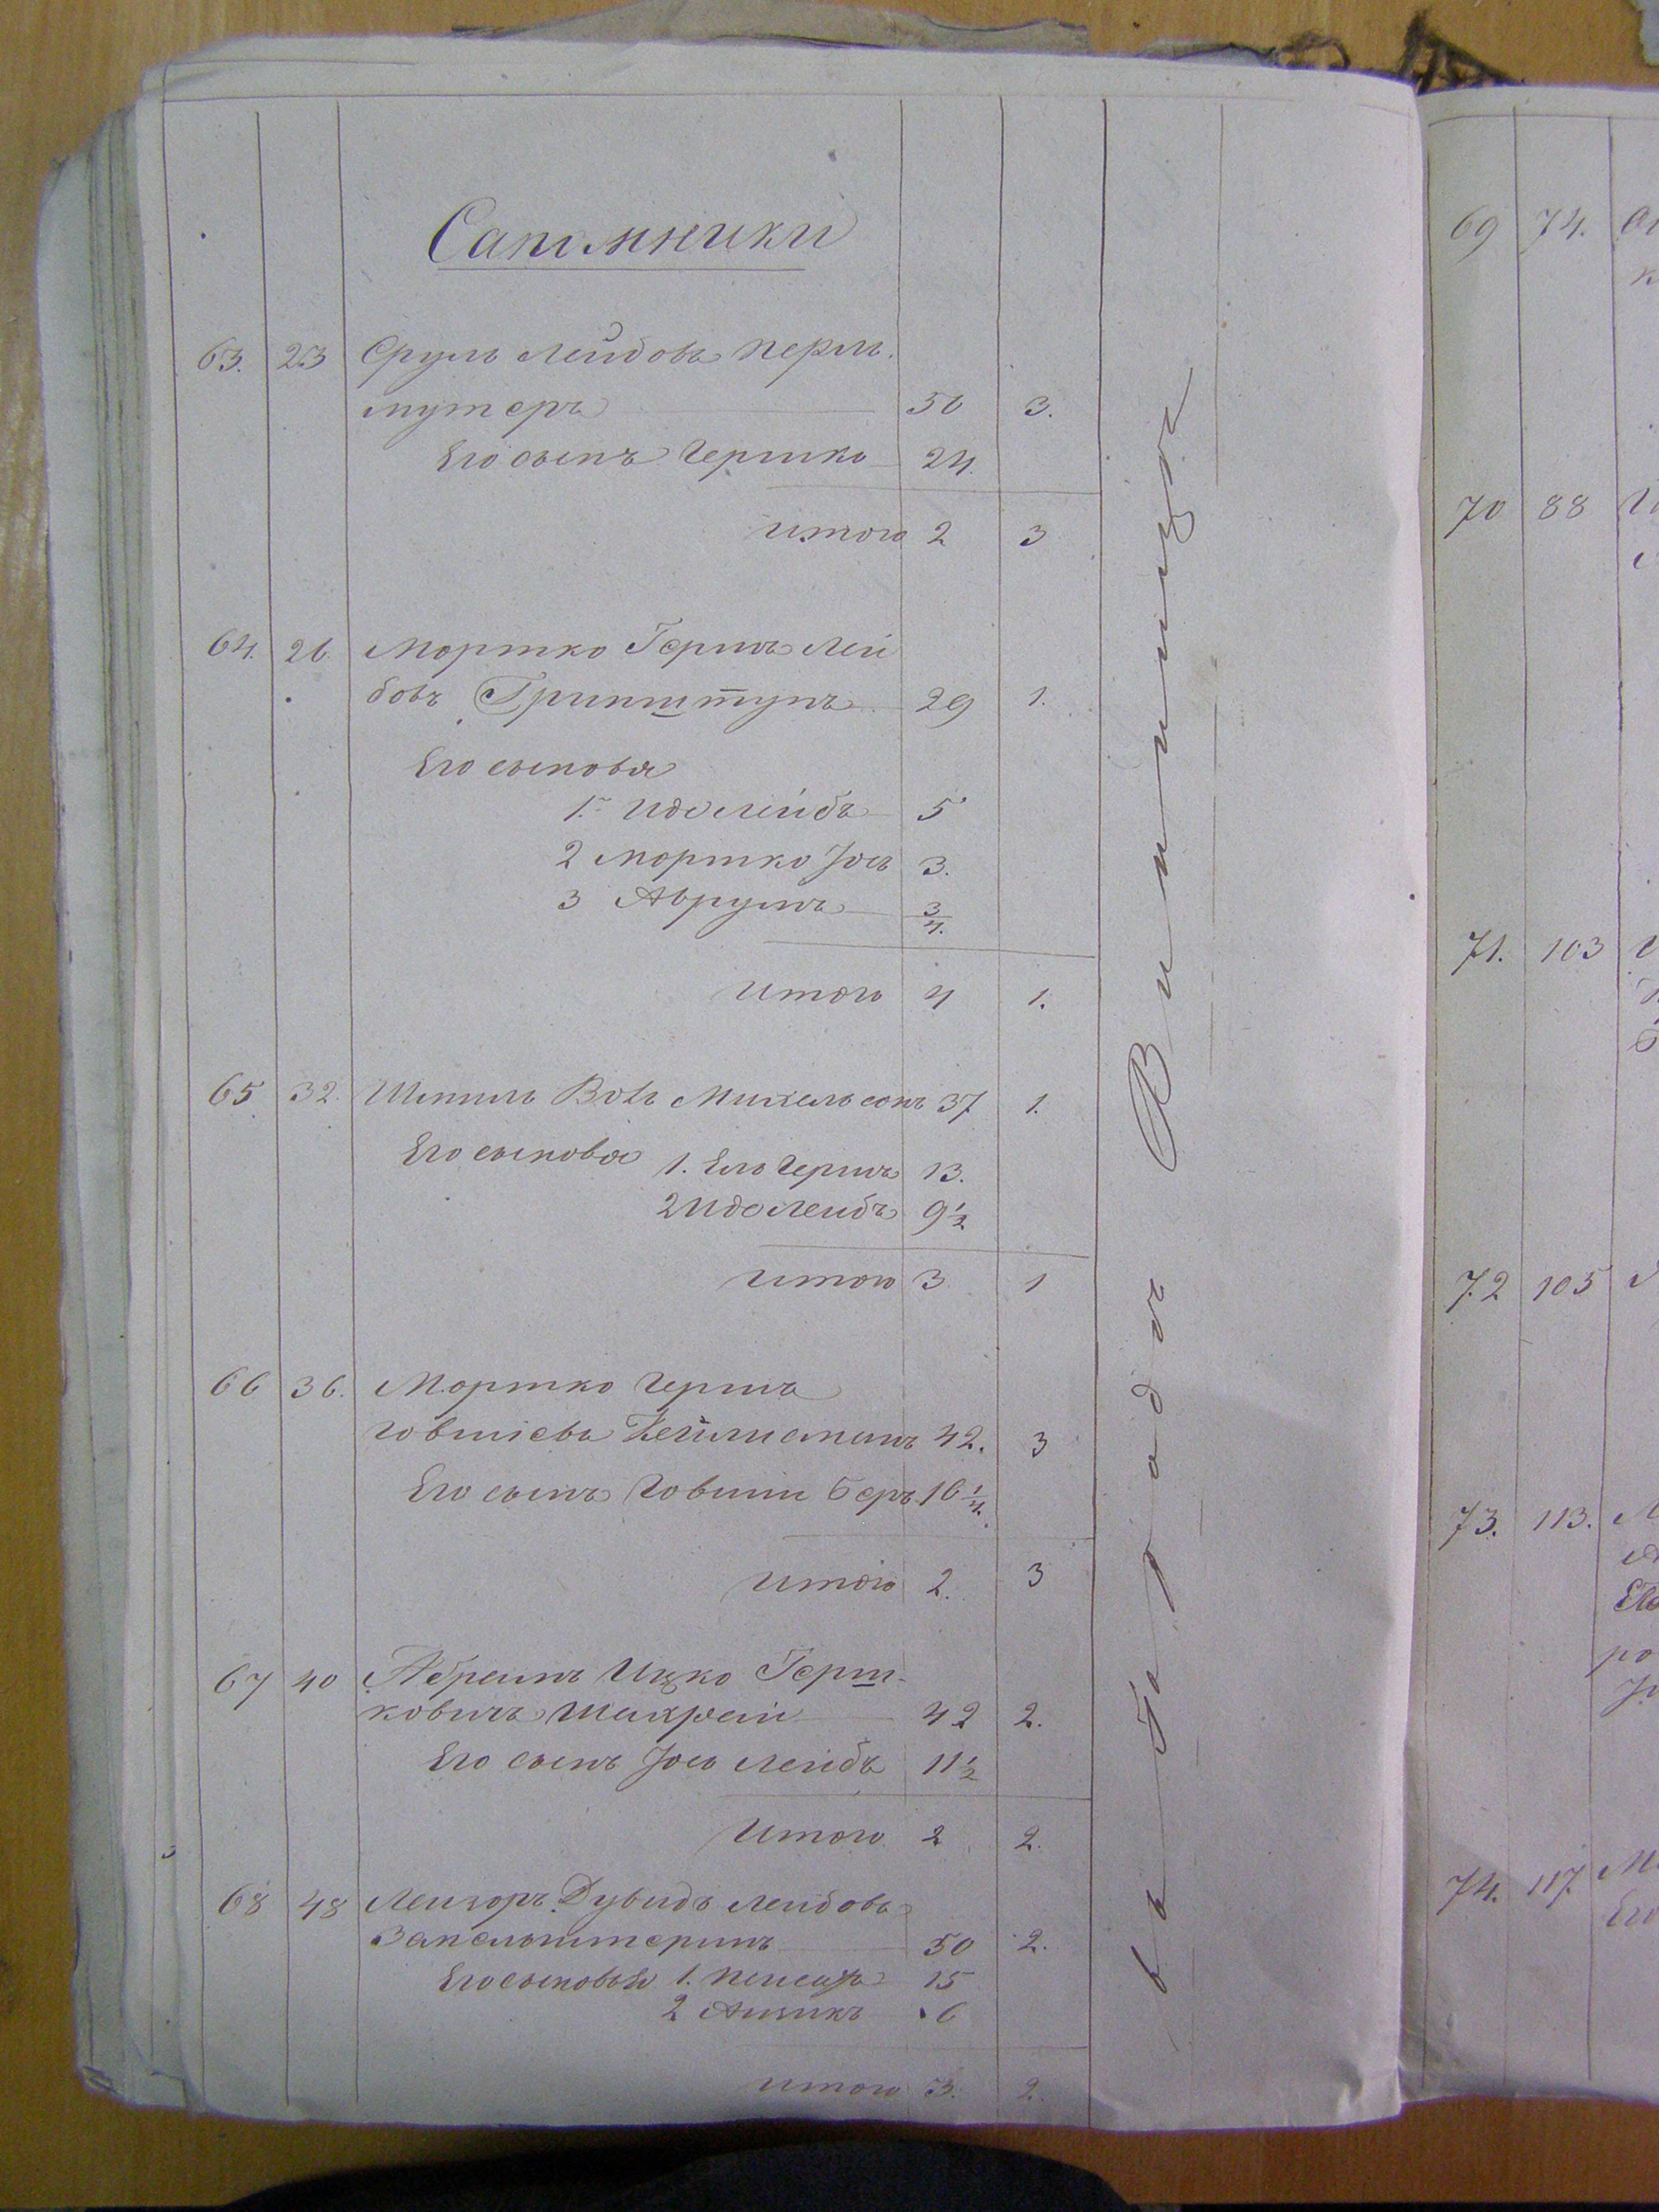 Сапожники
63. 23 Сруль Лейбовъ Перль-
мутеръ 50 3.
Его сынъ Гершко 24.
Итого 2 3
64. 26. Мортко Гершъ Лей
бовъ Гринштунъ 29 1.
Его сыновья
1. Идо Лейбъ 5
2 Мортко Іось 3.
3 Аврумъ 3/4.
Итого 4 1.
65 32. Шмиль Вовъ Михельсонъ 37 1.
Его сыновья 1. Ель Гершъ 13.
2 Идо Лейбъ 9 1/2
Итого 3 1
66 36. Мортко Гершъ
Говшіевъ 42. 3
Его сынъ Говшіи Беръ 16 1/4.
Итого 2. 3
67 40 Абрамъ Ицко Герш-
ковичъ 42 2.
Его сынъ Іось Лейбъ 11 1/2
Итого 2 2.
68 48 Лейзоръ Дувидъ Лейбовъ
50 2.
Его сыновья 1. Пейсахъ 15
2 Айзикъ 6
Итого 3. 2.
въ городѣ Винница
69 74.
70 88
71. 103
72 105
73. 113.
74. 117.